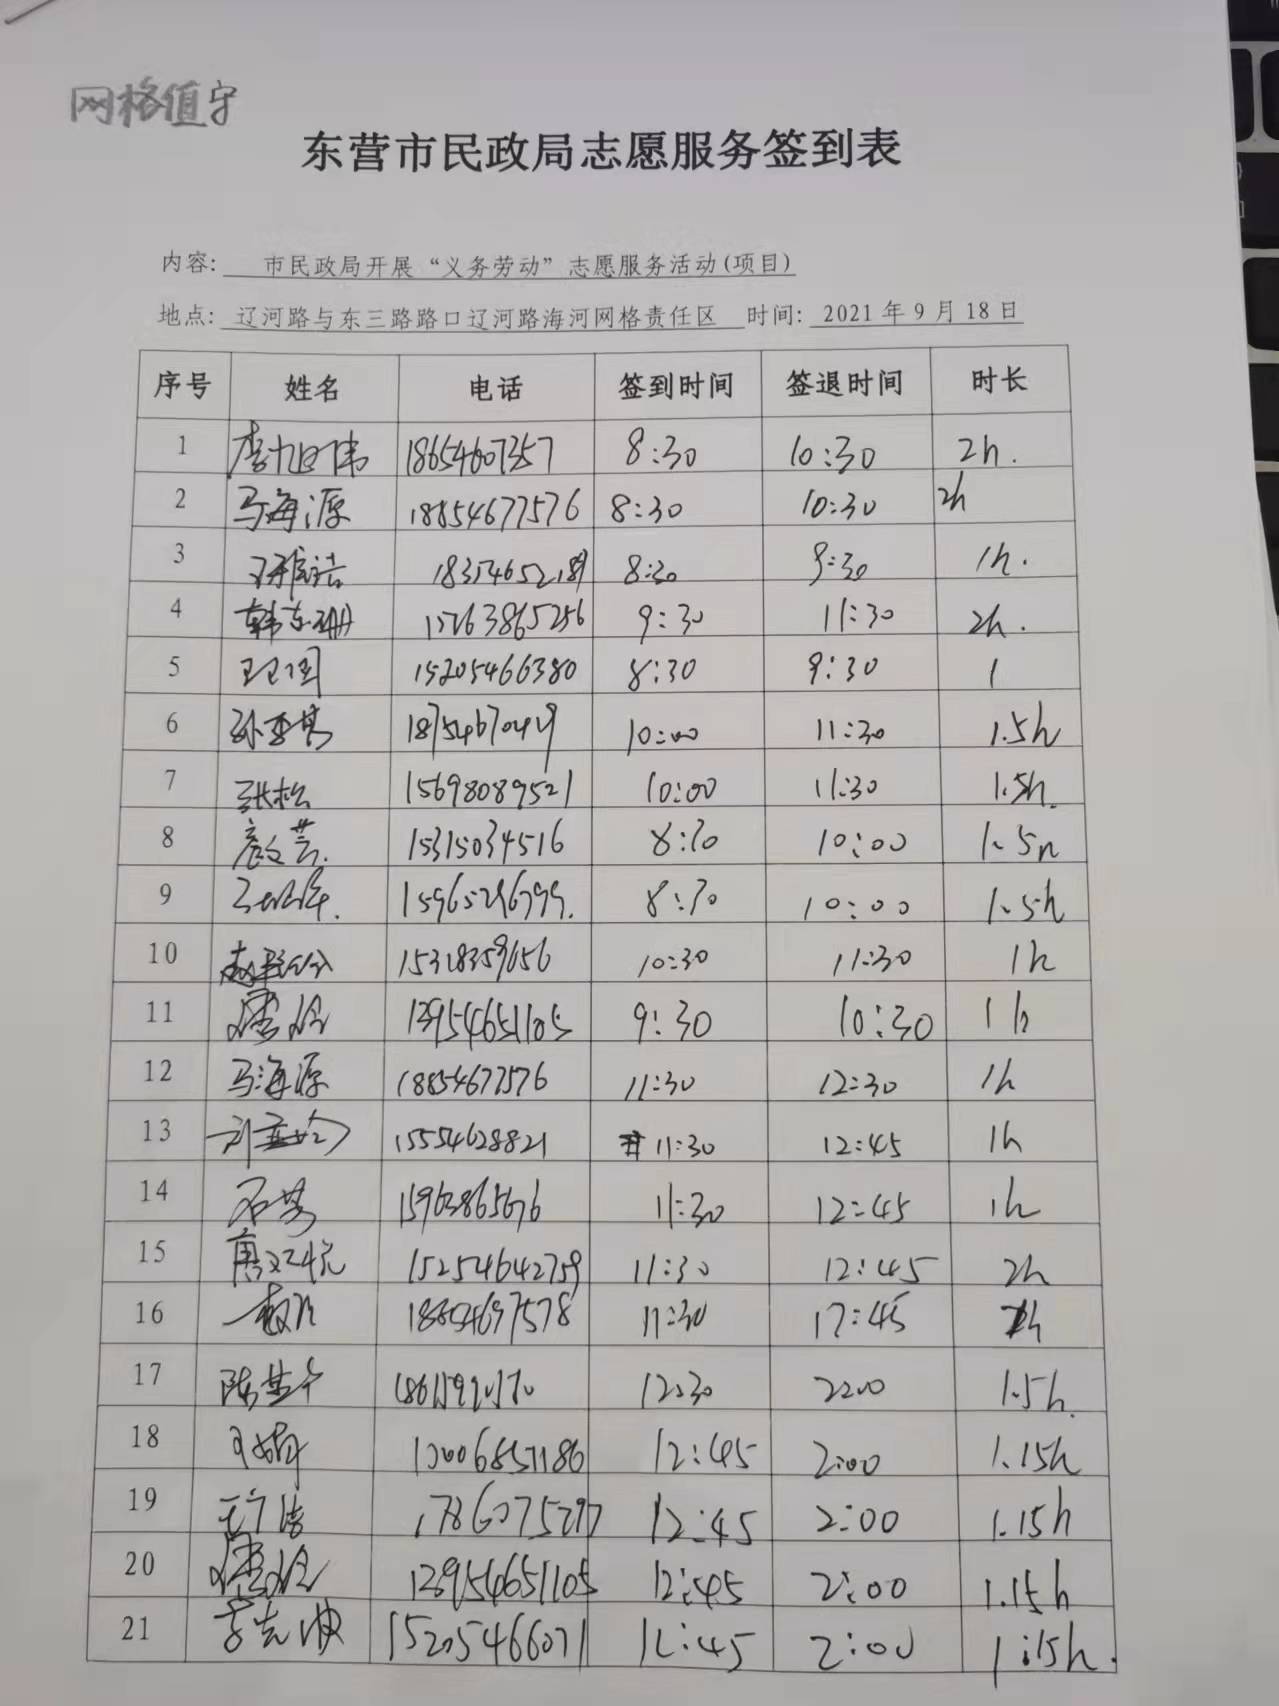 网格值守
东营市民政局志愿服务签到表
内容: 市民政局开展“义务劳动”志愿服务活动(项目)
地点: 辽河路与东三路路口辽河路海河网格责任区 时间: 2021年9月18日
序号 姓名 电话 签到时间 签退时间 时长
1 李旭伟 18654607357 8:30 10:30 2h.
2 马海源 18854677576 8:30 10:30 2h
3 8:30 9:30 1h.
4 韩东珊 15263865256 9:30 11:30 2h.
5 王卫国 15205466380 8:30 9:30 1
6 孙亚男 10:00 11:30 1.5h
7 张松 15698089521 10:00 11:30 1.5h.
8 15315034516 8:30 10:00 1.5h
9 8:30 10:00 1.5h
10 15318359656 10:30 11:30 1h
11 13954651105 9:30 10:30 1h
12 马海源 18854677576 11:30 12:30 1h
13 15554628821 11:30 12:45 1h
14 石芳 15963865676 11:30 12:45 1h
15 15254642759 11:30 12:45 2h
16 18854697578 11:30 12:45
17 12:30 2:00 1.5h.
18 12:45 2:00 1.15h
19 12:45 2:00 1.15h
20 13954651105 12:45 2:00 1.15h
21 李先波 15205466071 12:45 2:00 1:15h.